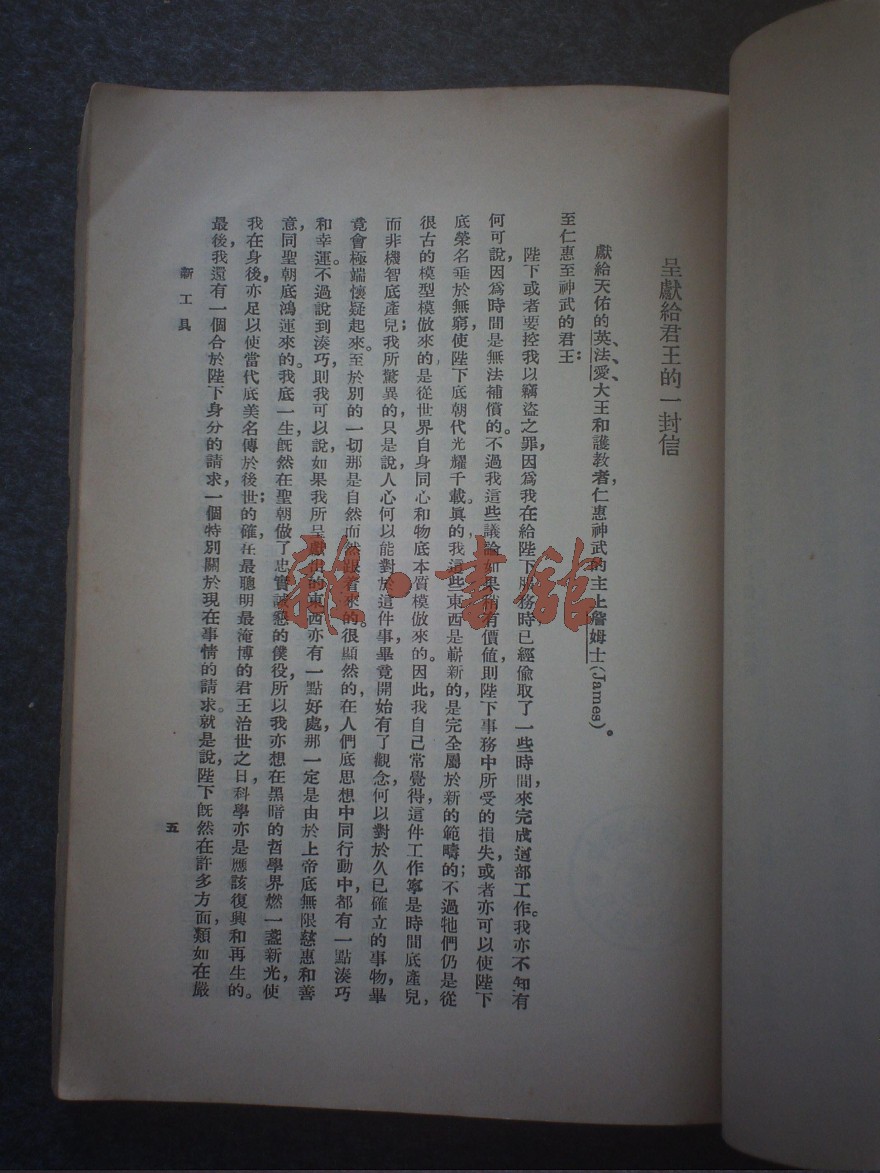 呈獻給君王的一封信
獻給天佑的英、法、愛、大王和護教者，仁惠神武的主上詹姆士(James)。
至仁惠至神武的君王：
陛下或者要控我以竊盜之罪，因爲我在給陛下服務時已經偸取了一些時間，來完成這部工作。我亦不知有
何可說，因爲時間是無法補償的。不過我這些議論如果稍有價値，則陛下事務中所受的損失，或者亦可以使陛下
底榮名垂於無窮，使陛下底朝代光耀千載。眞的，我這些東西是嶄新的，是完全屬於新的範疇的；不過牠們仍是從
很古的模型模倣來的，是從世界自身同心和物底本質模倣來的。因此，我自己常覺得，這件工作寧是時間底產兒，
而非機智底產兒；我所驚異的，只是說，人心何以能對於這件事畢竟開始有了觀念，何以對於久已確立的事物，畢
竟會極端懷疑起來。至於別的一切那是自然而然跟着來的。很顯然的，在人們底思想中同行動中，都有一點湊巧
和幸運。不過說到湊巧，則我可以說，如果我所呈獻出的東西亦有一點好處，那一定是由於上帝底無限慈惠和善
意，同聖朝底鴻運來的。我底一生，旣然在聖朝做了忠實誠懇的僕役，所以我亦想在黑暗的哲學界燃一盞新光，使
我在身後，亦足以使當代底美名傳於後世；的確，在最聰明最淹博的君王治世之日，科學亦是應該復興和再生的。
最後，我還有一個合於陛下身分的請求，一個特別關於現在事情的請求。就是說，陛下旣然在許多方面，類如在嚴
新工具
五
雜·書館